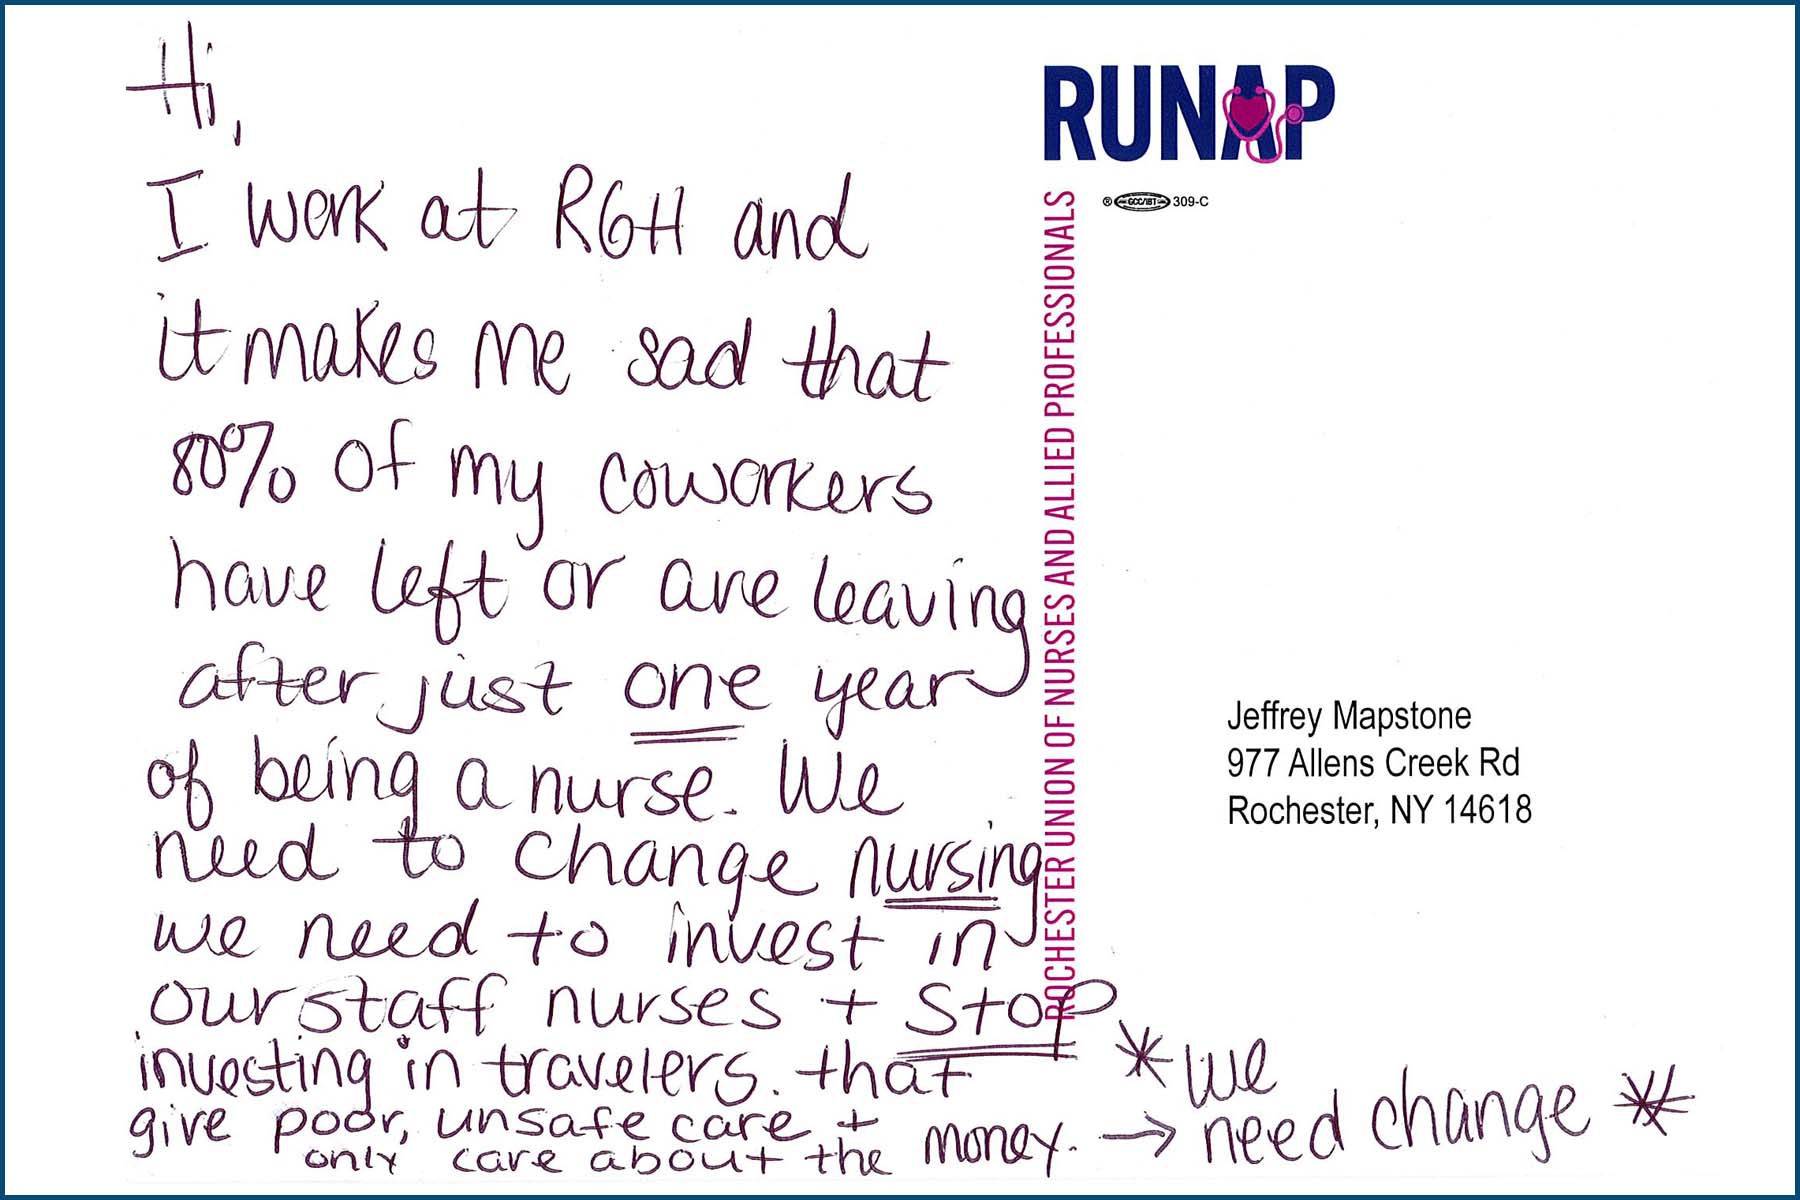 Hi,
I work at RGH and
it makes me sad that
80% of my coworkers
have left or are leaving
after just one year
of being a nurse. We
need to change nursing
we need to invest in
our staff nurses + STOP
investing in travelers. that
give poor, unsafe care +
only care about the money. → *we
need change *
RUNAP
® GCC/IBT 309-C
ROCHESTER UNION OF NURSES AND ALLIED PROFESSIONALS
Jeffrey Mapstone
977 Allens Creek Rd
Rochester, NY 14618